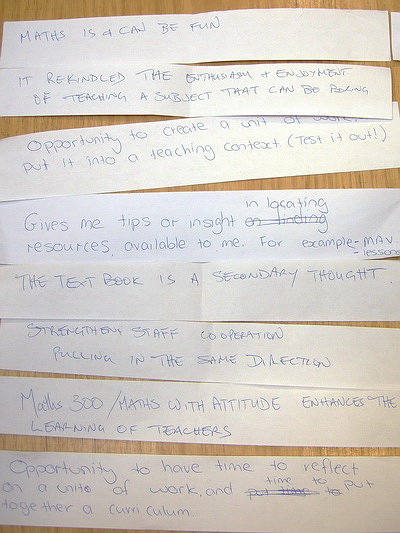 MATHS IS & CAN BE FUN
IT REKINDLED THE ENTHUSIASM & ENJOYMENT
OF TEACHING A SUBJECT THAT CAN BE BORING
Opportunity to create a unit of work.
put it into a teaching context. (Test it out!)
in locating
Gives me tips or insight on finding
resources available to me. For example - MAV
lessons
THE TEXT BOOK IS A SECONDARY THOUGHT.
STRENGTHENS STAFF COOPERATION
PULLING IN THE SAME DIRECTION
Maths 300 / MATHS WITH ATTITUDE ENHANCES THE
LEARNING OF TEACHERS
Opportunity to have time to reflect
on a unit of work, and time to put
together a curriculum.